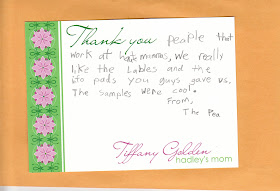 Thank you people that
work at hotmamas, We really
like the bables and the
ito pads you guys gave us.
The samples were cool.
From,
The Pea
Tiffany Golden
hadley's mom